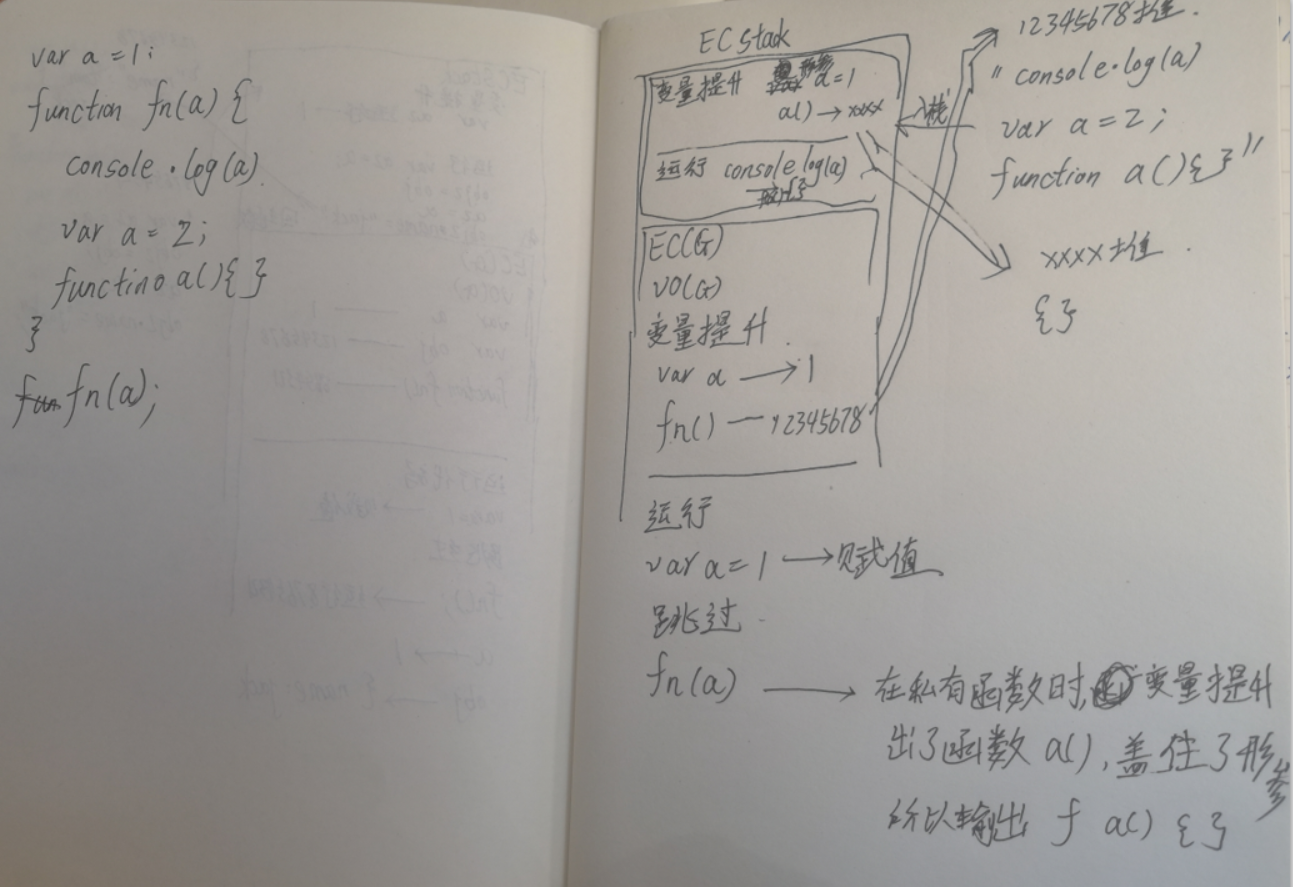 var a = 1;
function fn(a) {
console.log(a)
var a = 2;
functino a(){ }
}
fn(a);
EC Stack
变量提升 形参 a=1
a() → xxxx
运行 console.log(a)
入栈
EC(G)
VO(G)
变量提升.
var a → 1
fn() — 12345678
运行
var a = 1 → 赋值
跳过
fn(a) → 在私有函数时, 变量提升
出了函数 a(), 盖住了形参
所以输出 f a() { }
12345678堆.
" console.log(a)
var a = 2;
function a(){ } "
xxxx堆.
{ }